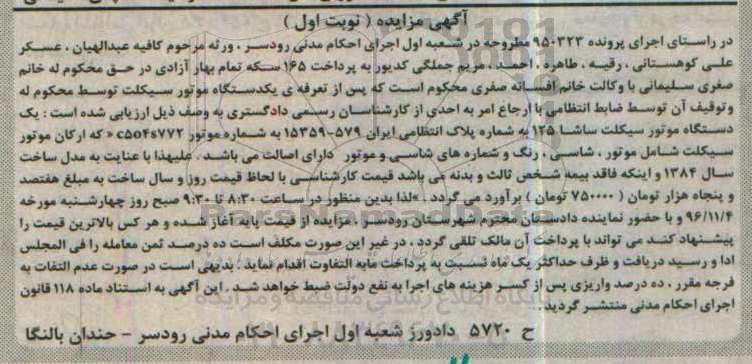 آگهی مزایده ( نوبت اول )
در راستای اجرای پرونده ۹۵۰۳۲۳ مطروحه در شعبه اول اجرای احکام مدنی رودسر ، ورثه مرحوم کافیه عبدالهیان ، عسکر
علی کوهستانی ، رقیه ، طاهره ، احمد ، مریم جملگی کدیور به پرداخت ۱۶۵ سکه تمام بهار آزادی در حق محکوم له خانم
صغری سلیمانی با وکالت خانم افسانه صفری محکوم است که پس از تعرفه ی یکدستگاه موتور سیکلت توسط محکوم له
وتوقیف آن توسط ضابط انتظامی با ارجاع امر به احدی از کارشناسان رسمی دادگستری به وصف ذیل ارزیابی شده است : یک
دستگاه موتور سیکلت ساشا ۱۲۵ به شماره پلاک انتظامی ایران ۵۷۹-۱۵۳۵۹ به شماره موتور c5o4s۷۷۲ « که ارکان موتور
سیکلت شامل موتور ، شاسی ، رنگ و شماره های شاسی و موتور دارای اصالت می باشد . علیهذا با عنایت به مدل ساخت
سال ۱۳۸۴ و اینکه فاقد بیمه شخص ثالث و بدنه می باشد قیمت کارشناسی با لحاظ قیمت روز و سال ساخت به مبلغ هفتصد
و پنجاه هزار تومان ( ۷۵۰۰۰۰ تومان ) برآورد می گردد . »لذا بدین منظور در ساعت ۸:۳۰ تا ۹:۳۰ صبح روز چهارشنبه مورخه
۹۶/۱۱/۴ و با حضور نماینده دادستان محترم شهرستان رودسر ، مزایده از قیمت پایه آغاز شده و هر کس بالاترین قیمت را
پیشنهاد کند می تواند با پرداخت آن مالک تلقی گردد . در غیر این صورت مکلف است ده درصد ثمن معامله را فی المجلس
ادا و رسید دریافت و ظرف حداکثر یک ماه نسبت به پرداخت مابه التفاوت اقدام نماید . بدیهی است در صورت عدم التفات به
فرجه مقرر ، ده درصد واریزی پس از کسر هزینه های اجرا به نفع دولت ضبط خواهد شد . این آگهی به استناد ماده ۱۱۸ قانون
اجرای احکام مدنی منتشر گردید .
ح ۵۷۲۰ دادورز شعبه اول اجرای احکام مدنی رودسر – حندان بالنگا